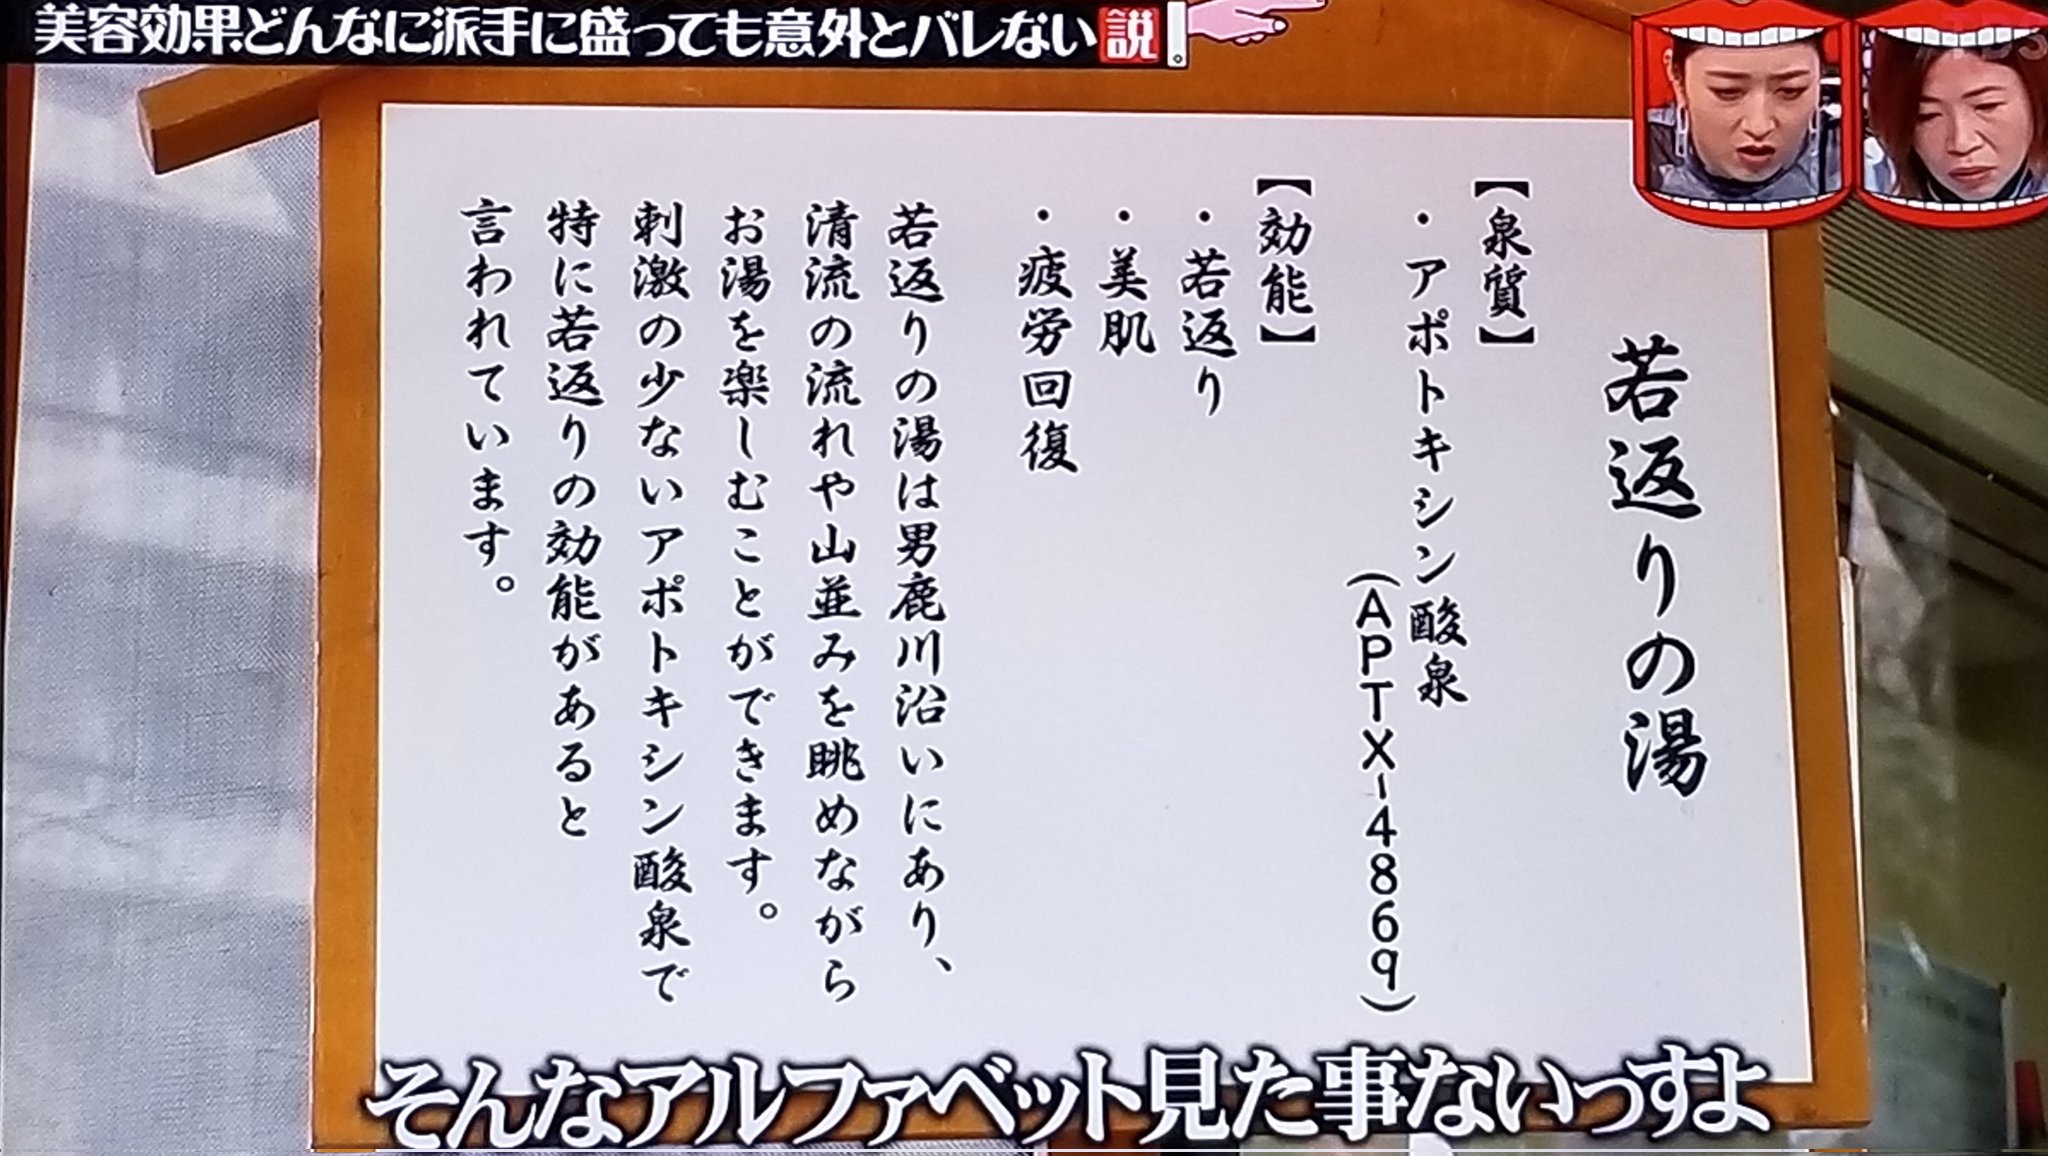 美容効果どんなに派手に盛っても意外とバレない説。
若返りの湯
【泉質】
・アポトキシン酸泉
（APTX-4869）
【効能】
・若返り
・美肌
・疲労回復
若返りの湯は男鹿川沿いにあり、
清流の流れや山並みを眺めながら
お湯を楽しむことができます。
刺激の少ないアポトキシン酸泉で
特に若返りの効能があると
言われています。
そんなアルファベット見た事ないっすよ